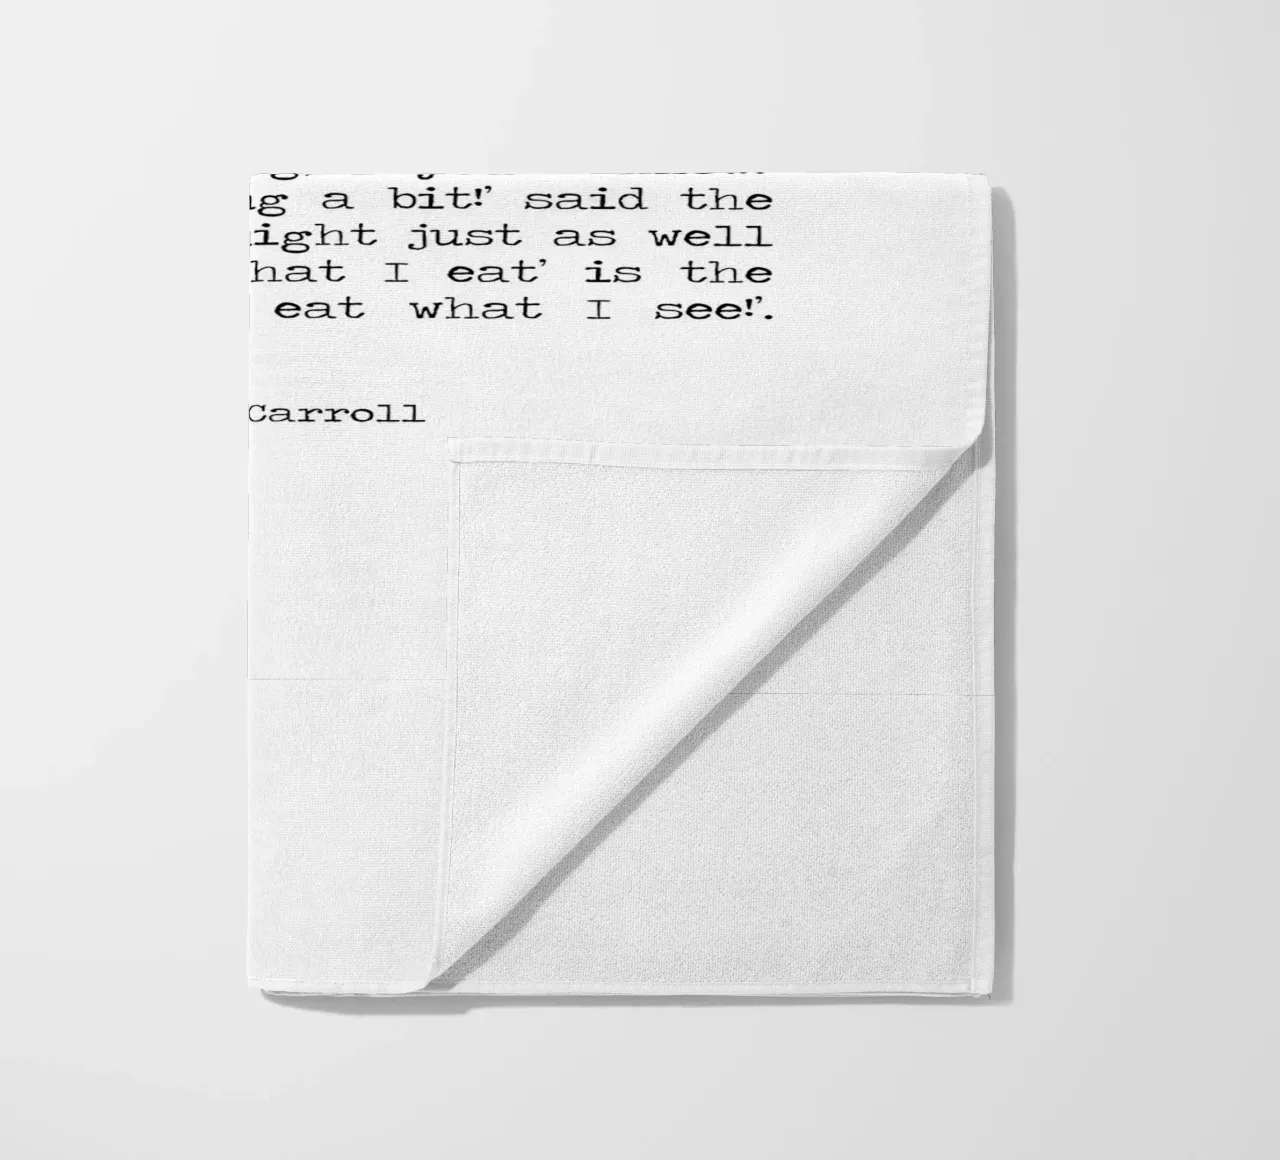 a bit!’ said the
just as well
I eat’ is the
eat what I see!’.
Carroll